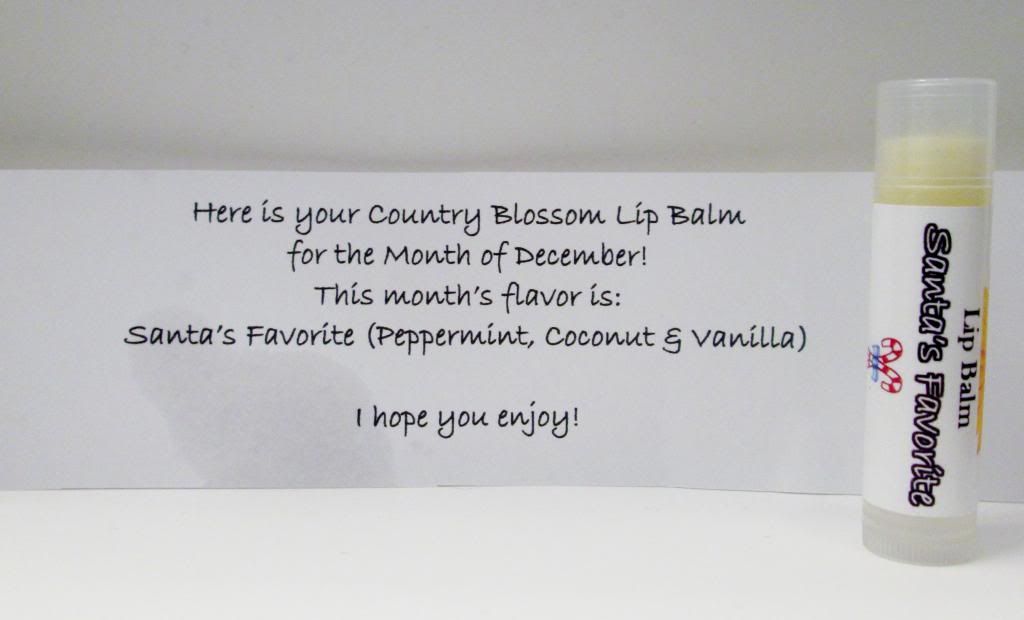 Here is your Country Blossom Lip Balm
for the Month of December!
This month's flavor is:
Santa's Favorite (Peppermint, Coconut & Vanilla)
I hope you enjoy!
Lip Balm
Santa's Favorite